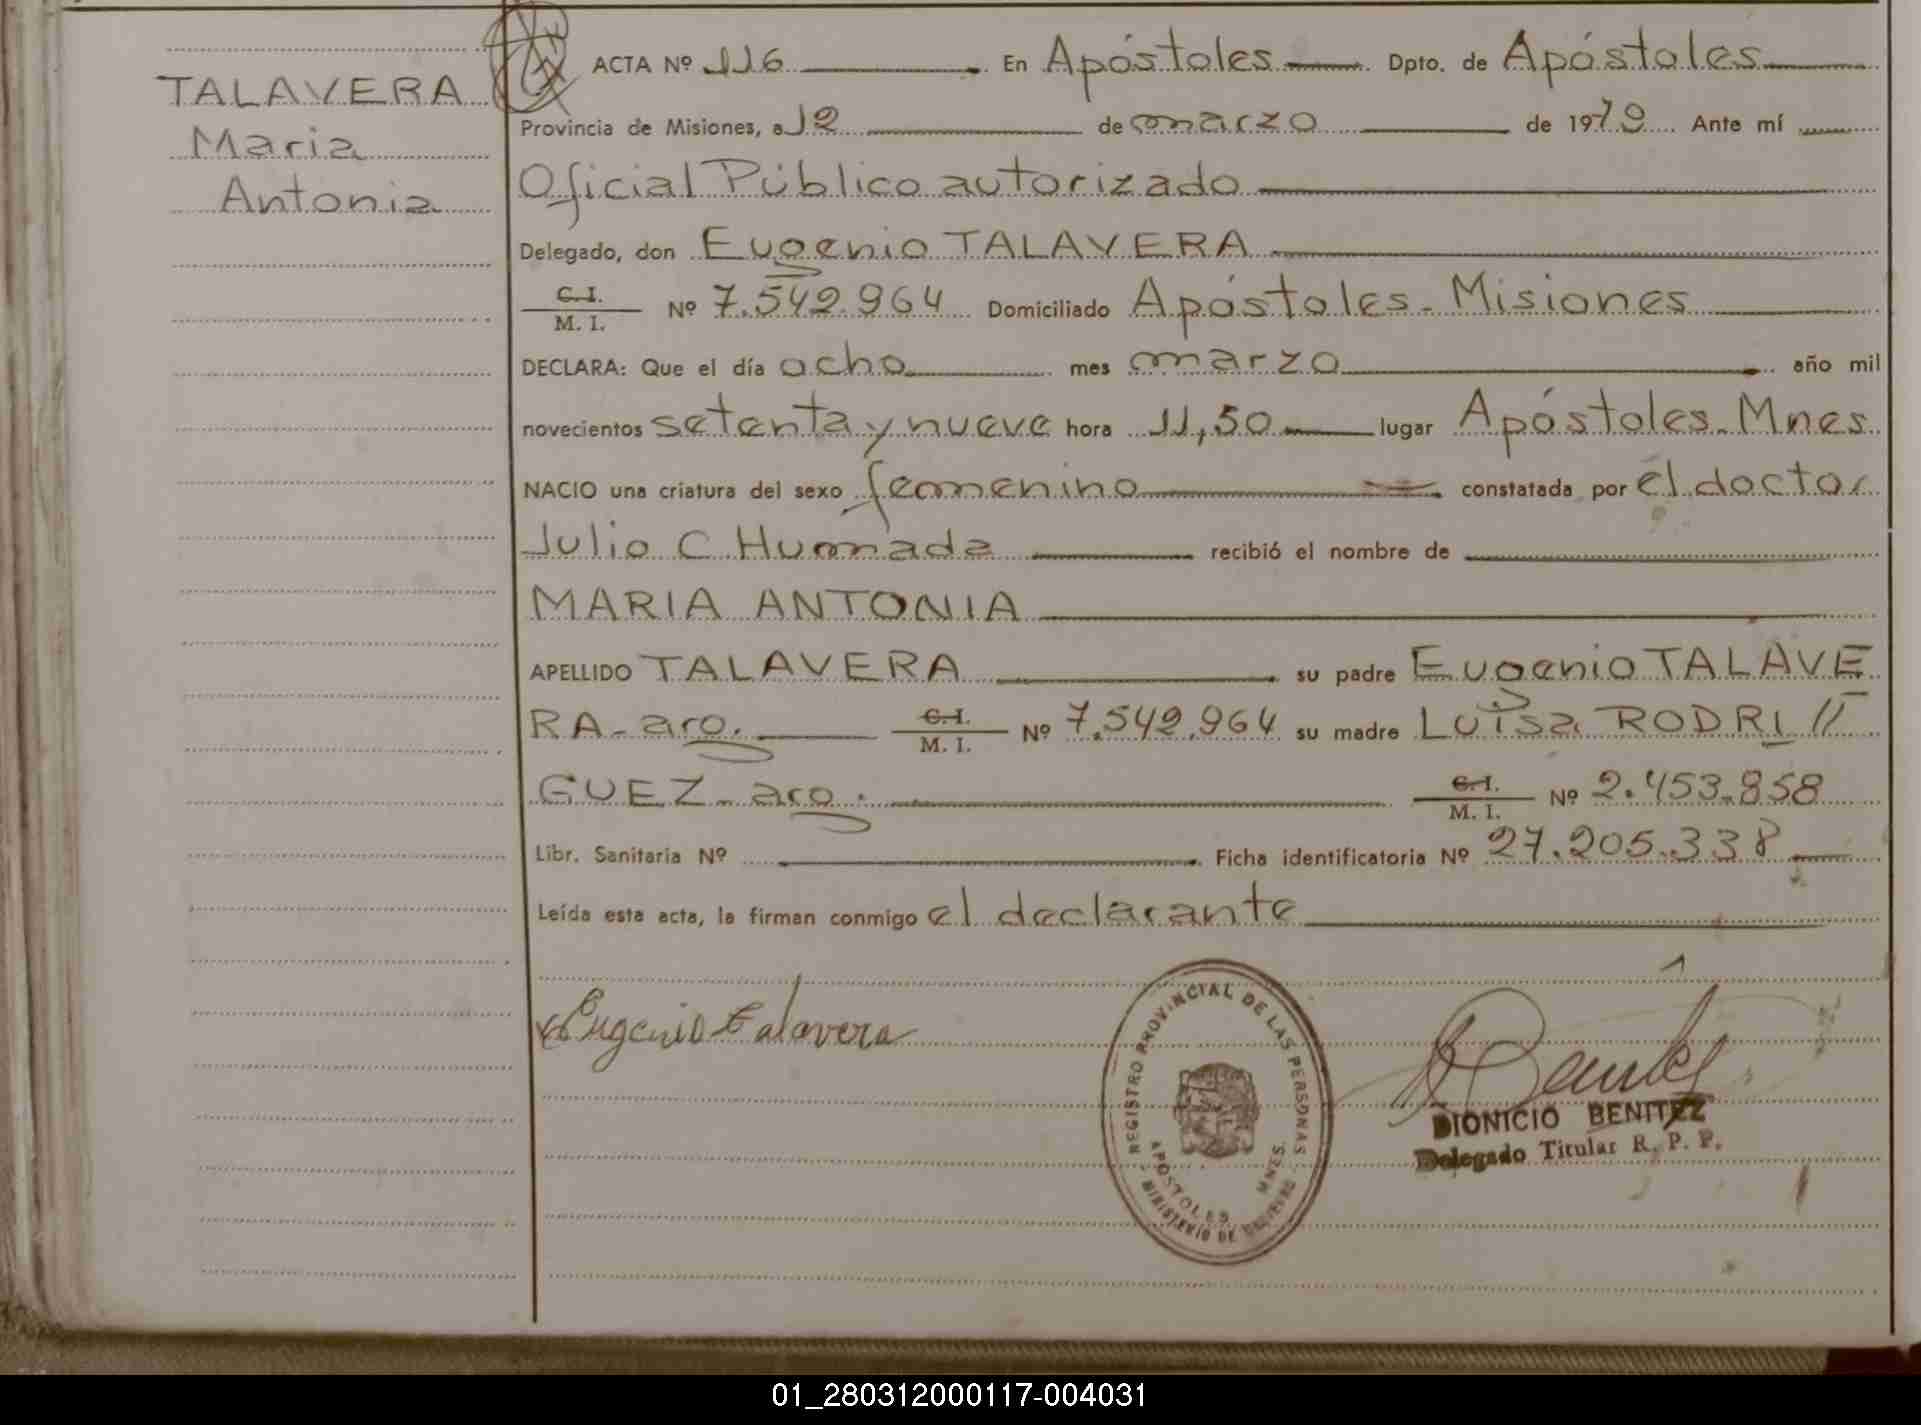 TALAVERA
Maria
Antonia
ACTA Nº 116 En Apóstoles Dpto. de Apóstoles
Provincia de Misiones, a 12 de marzo de 1979 Ante mí
Oficial Público autorizado
Delegado, don Eugenio TALAVERA
C.I. / M. I. Nº 7.542.964 Domiciliado Apóstoles - Misiones
DECLARA: Que el día ocho mes marzo año mil
novecientos setenta y nueve hora 11,50 lugar Apóstoles - Mnes
NACIO una criatura del sexo femenino constatada por el doctor
Julio C Humada recibió el nombre de
MARIA ANTONIA
APELLIDO TALAVERA su padre Eugenio TALAVE
RA - arg. C.I. / M. I. Nº 7.542.964 su madre LUISA RODRI //
GUEZ - arg. C.I. / M. I. Nº 2.453.858
Libr. Sanitaria Nº Ficha identificatoria Nº 27.205.338
Leída esta acta, la firman conmigo el declarante
Eugenio Talavera
REGISTRO PROVINCIAL DE LAS PERSONAS
APOSTOLES MNES.
MINISTERIO DE GOBIERNO
DIONICIO BENITEZ
Delegado Titular R. P. P.
01_280312000117-004031